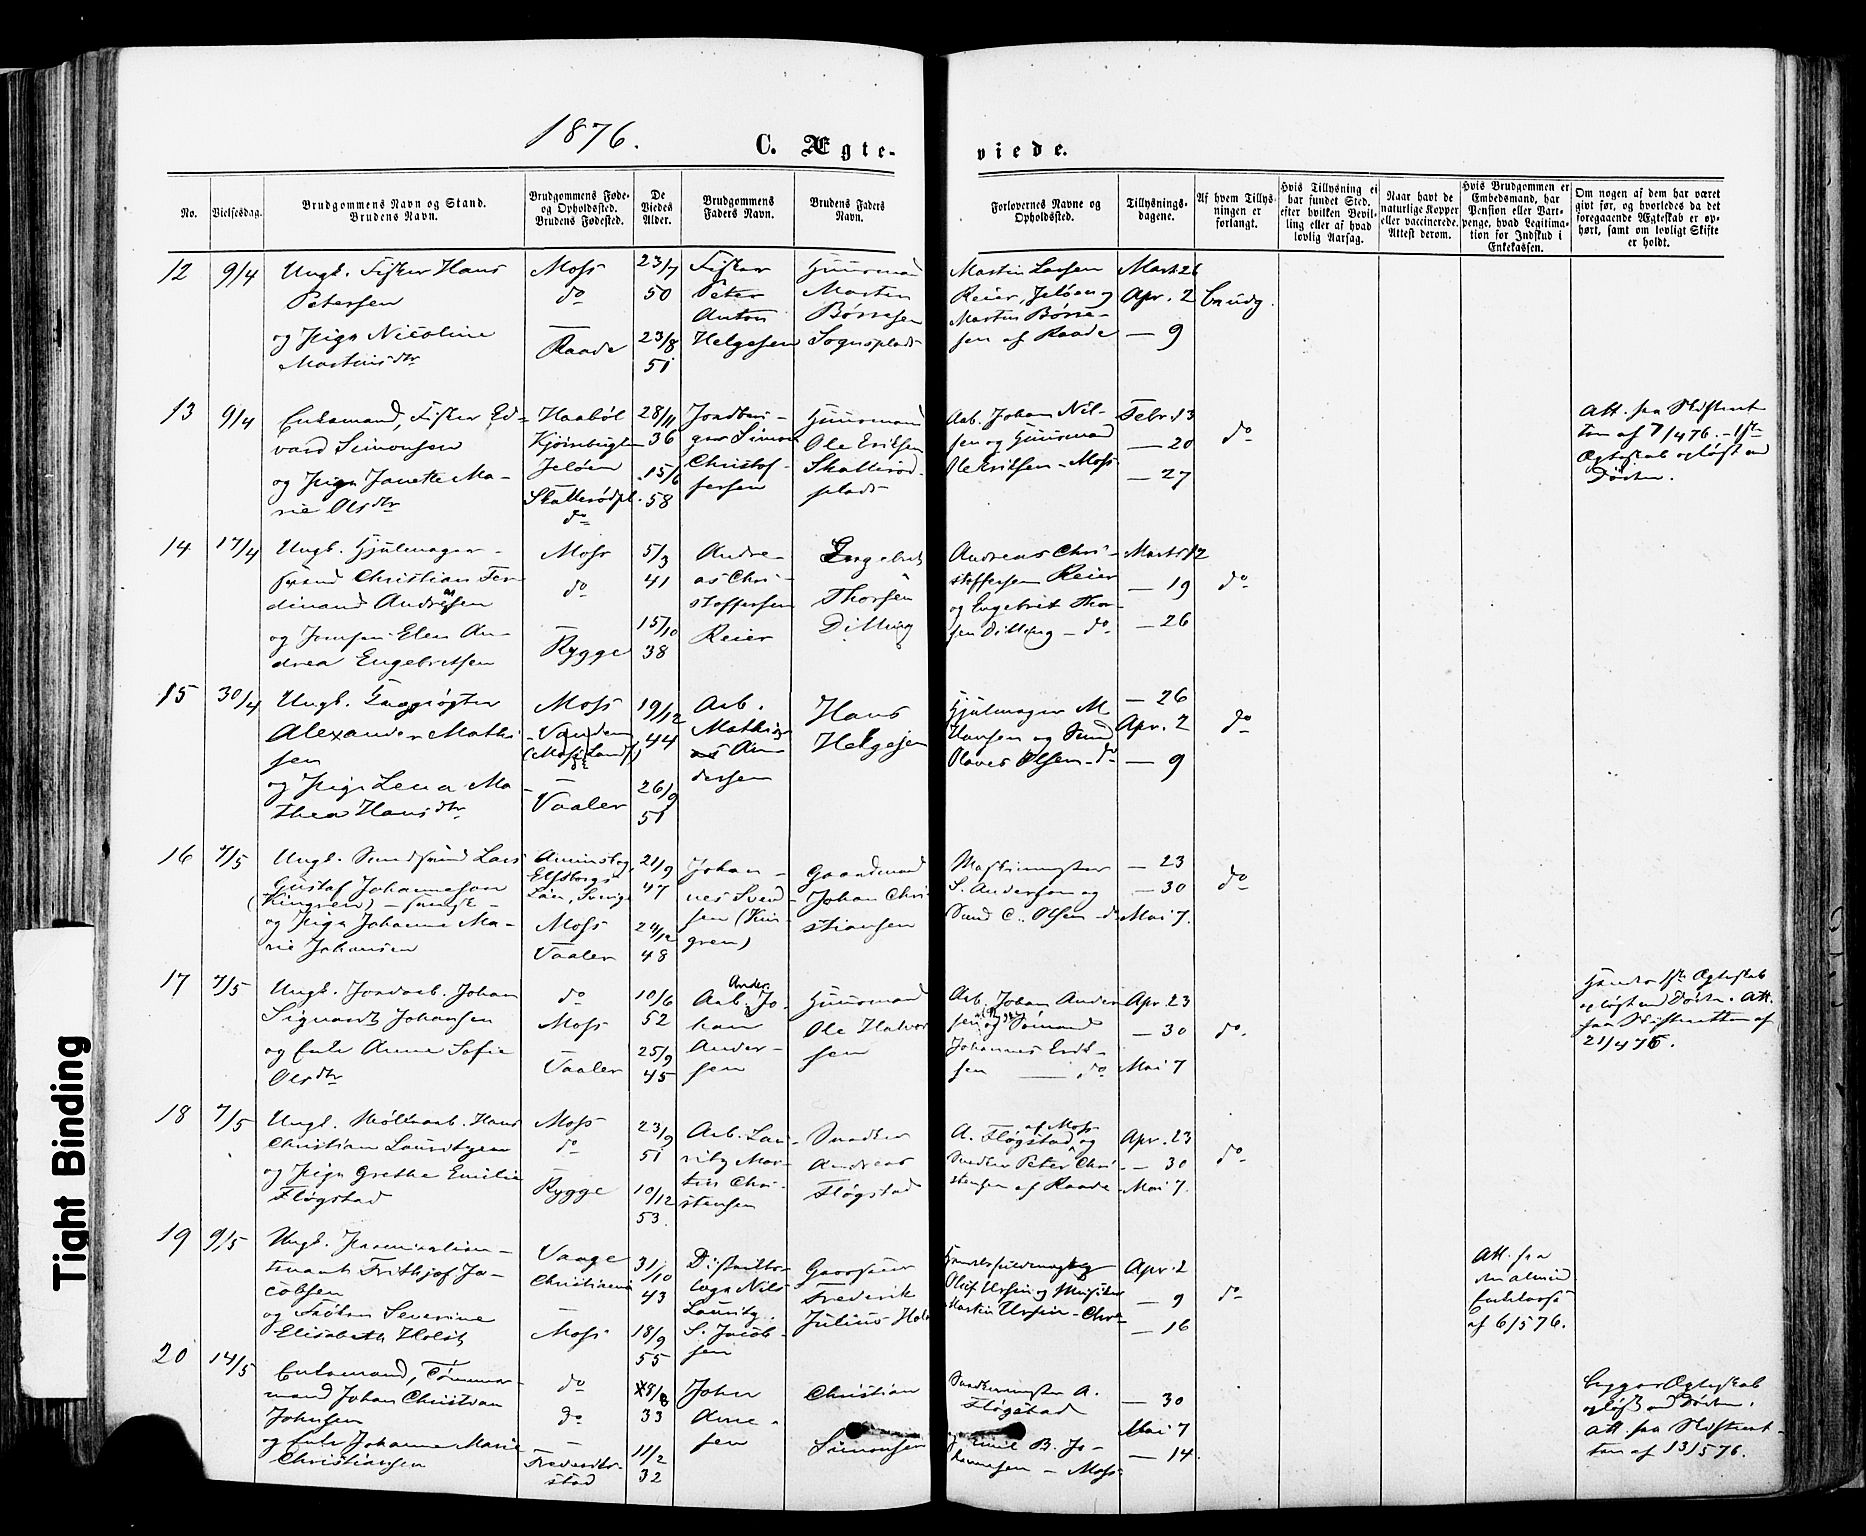 1876.
C. Ægte-
viede.
No.
Vielsesdag.
Brudgommens Navn og Stand.
Brudens Navn.
Brudgommens Føde-
og Opholdssted.
Brudens Fødested.
De
Viedes
Alder.
Brudgommens
Faders Navn.
Brudens Faders
Navn.
Forlovernes Navne og
Opholdssted.
Tillysnings-
dagene.
Af hvem Tillys-
ningen er
forlangt.
Hvis Tillysning ei
har fundet Sted,
efter hvilken Bevil-
ling eller af hvad
lovlig Aarsag.
Naar havt de
naturlige Kopper
eller vaccinerede.
Attest derom.
Hvis Brudgommen er
Embedsmand, har
Pension eller Vart-
penge, hvad Legitima-
tion for Indskud i
Enkekassen.
Om nogen af dem har været
givt før, og hvorledes da det
foregaaende Ægteskab er op-
hørt, samt om lovligt Skifte
er holdt.
12
9/4
Ungk. Fisker Hans
Petersen
og Pige Nicoline
Martinsdtr
Moss
do
Raade
23/7
50
23/8
51
Fisker
Peter
Anton
Helgesen
Huusmand
Martin
Børresen
Sognsplads
Martin Larsen
Reier, Jeløen og
Martin Børre-
sen af Raade
Marts 26
Apr. 2
— 9
Brudg.
13
9/4
Enkemand, Fisker Ed-
vard Simonsen
og Pige Janette Ma-
rie Olsdtr
Jeløen
Skallerødpl.
do
28/11
36
15/6
58
Simon
Christof-
fersen
Huusmand
Ole Eriksen
Skallerød-
plads
Arb. Johan Nil-
sen og Huusmand
Ole Eriksen - Moss
Febr. 13
— 20
— 27
do
Att. fra Skifteret-
ten af 7/4 76. - 1ste
Ægteskab opløst ved
Døden.
14
17/4
Ungk. Hjulmager-
svend Christian Fer-
dinand Andreasen
og Jomfru Elen An-
drea Engebretsen
Moss
do
Rygge
5/3
41
15/10
38
Andre-
as Chri-
stoffersen
Reier
Engebret
Thorsen
Dilling
Andreas Chri-
stoffersen Reier
og Engebret Thor-
sen Dilling - do
Marts 12
— 19
— 26
do
15
30/4
Alexander Mathi-
sen
og Pige Lena Ma-
thea Hansdtr
Moss
Vanden
(Moss Lands.)
Vaaler
19/12
44
26/9
51
Arb.
Mathias
An-
dersen
Hans
Helgesen
Hjulmager M
Hansen og Smed
Olaves Olsen - do
— 26
Apr. 2
— 9
do
16
7/5
Ungk. Smedsvend Lars
Gustaf Johanneson
(Kingren) - svensk -
og Pige Johanne Ma-
rie Johansen
Elfsborgs
Län, Sverige
Moss
Vaaler
21/9
47
24/12
48
Johan-
nes Svend-
sen (Kin-
gren)
Gaardmand
Johan Chri-
stiansen
Maskinmester
S. Anderson og
Smed C. Olsen - do
— 23
— 30
Mai 7.
do
17
7/5
Ungk. Jordarb. Johan
Sigvardt Johansen
og Enke Anne Sofie
Olsdtr
do
Moss
Vaaler
10/6
52
25/9
45
Arb. Jo-
han
Ander-
sen
Huusmand
Ole Halvor-
sen
Arb. Johan Ander-
sen og Sømand
Johannes Erik-
sen — do
Apr. 23
— 30
Mai 7
do.
Hendes 1ste Ægteskab
opløst ved Døden. Att.
fra Skifteretten af
21/4 76.
18
7/5
Ungk. Møllearb. Hans
Christian Lauritzen
og Pige Grethe Emilie
Fløgstad
Moss
do
Rygge
23/9
51
10/12
53.
Arb. Lau-
ritz Mar-
tin Chri-
stensen
Snedker
Andreas
Fløgstad
A. Fløgstad af Moss og
Snedker Peter Chri-
stensen af Raade
Apr. 23
— 30
Mai 7.
do
19
9/5
Ungk. Premierlieu-
tenant Frithjof Ja-
cobsen
og Frøken Severine
Elisabeth Holst
Vange
Christiania
Moss
31/10
43
18/9
55
Distrikts-
læge Nils
Lauritz
S. Jacob-
sen
Frederik
Julius Holst
Oluf Ursin og Musiker
Martin Ursin - Chra
Apr. 2
— 9
— 16
do
Att. fra
den almind.
Enkekasse
af 6/5 76.
20
14/5
Enkemand, Tømmer-
mand Johan Christian
Johnsen
og Enke Johanne Marie
Christiansen
do
do
Frederik-
stad
8/8
33
11/2
32
John
Arne-
sen
Christian
Simonsen
Snedkermester A.
Fløgstad
og Emil B. Jo-
hannesen - Moss
— 30
Mai 7
— 14.
Begges Ægteskab
opløst ved Døden.
Att. fra Skifteret-
ten af 13/5 76.
Tight Binding